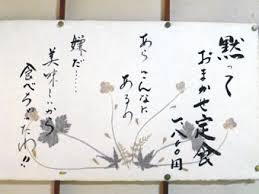 黙って
おまかせ定食
一、八〇〇円
あら こんなに
あるの
嫌だ……
美味しいから
食べちゃったわ!!